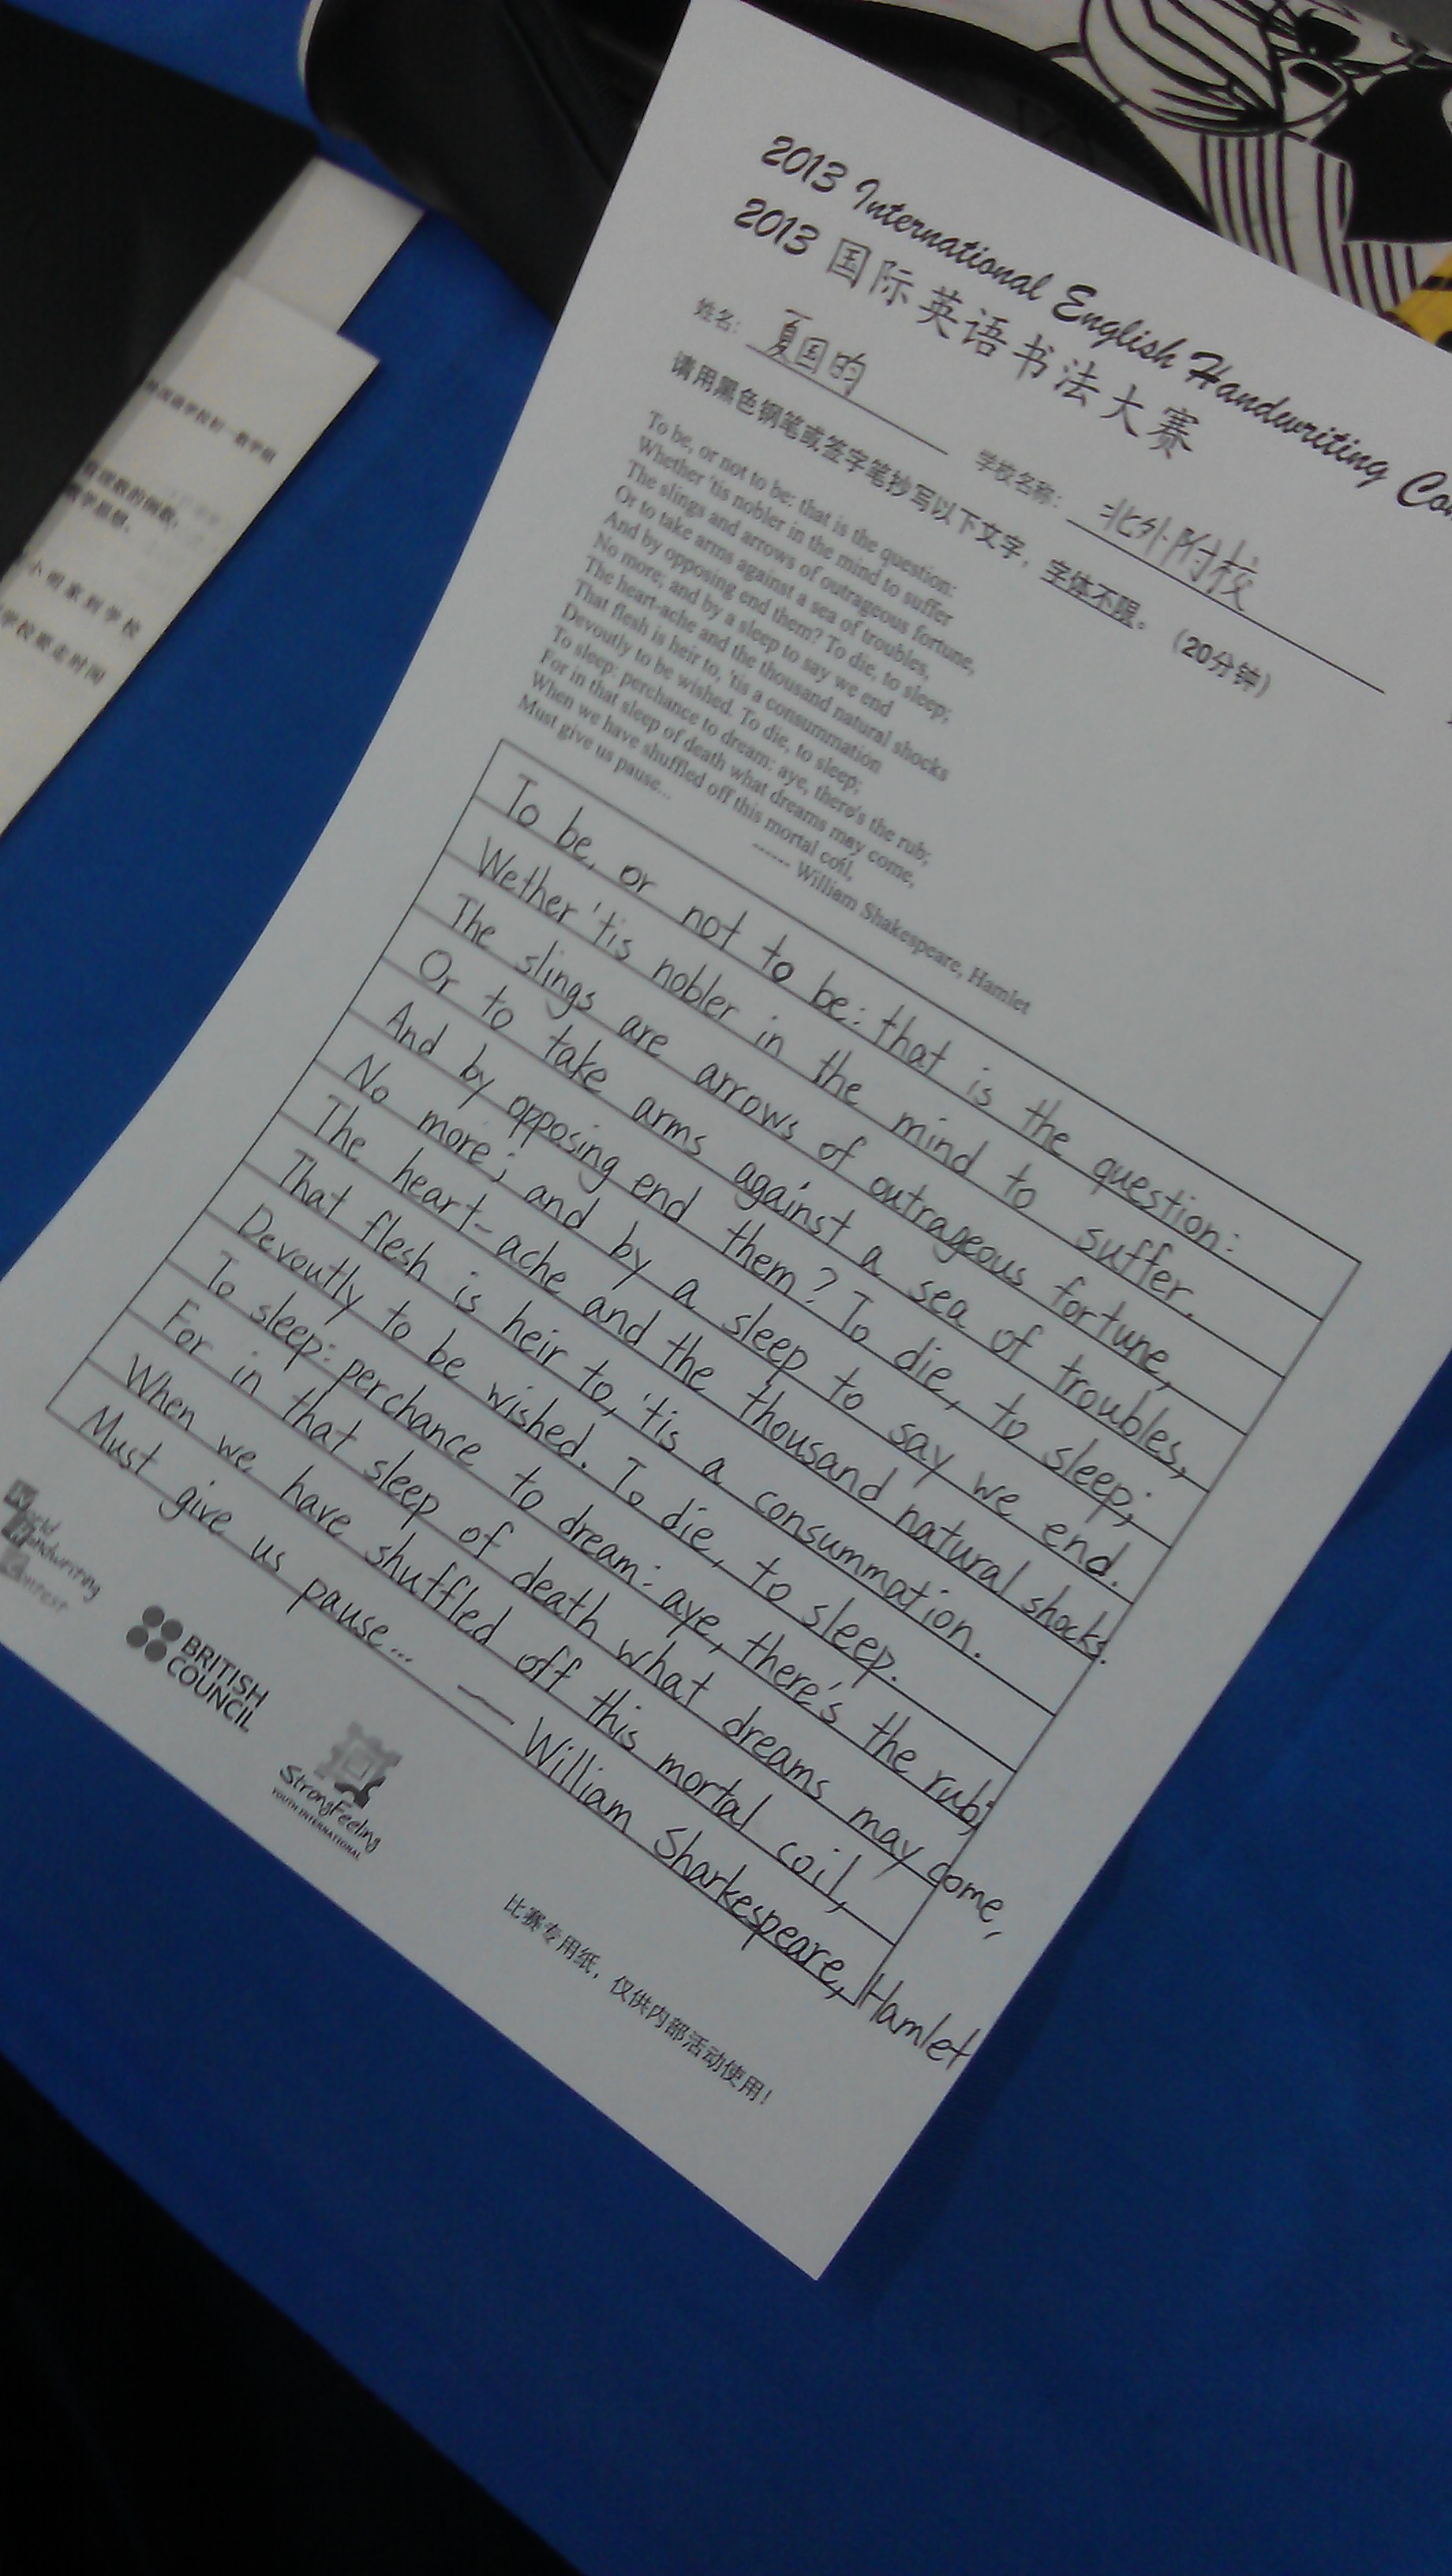 2013 International English Handwriting
2013 国际英语书法大赛
姓名: 夏国昀 学校名称: 北外附校
请用黑色钢笔或签字笔抄写以下文字，字体不限。（20分钟）
To be, or not to be: that is the question:
Whether 'tis nobler in the mind to suffer
The slings and arrows of outrageous fortune,
Or to take arms against a sea of troubles,
And by opposing end them? To die, to sleep;
No more; and by a sleep to say we end
The heart-ache and the thousand natural shocks
That flesh is heir to, 'tis a consummation
Devoutly to be wished. To die, to sleep;
To sleep: perchance to dream: aye, there's the rub;
For in that sleep of death what dreams may come,
When we have shuffled off this mortal coil,
Must give us pause...
------ William Shakespeare, Hamlet
To be, or not to be: that is the question:
Wether 'tis nobler in the mind to suffer.
The slings are arrows of outrageous fortune,
Or to take arms against a sea of troubles,
And by opposing end them? To die, to sleep;
No more; and by a sleep to say we end.
The heart-ache and the thousand natural shocks.
That flesh is heir to, 'tis a consummation.
Devoutly to be wished. To die, to sleep.
To sleep: perchance to dream: aye, there's the rub;
For in that sleep of death what dreams may come,
When we have shuffled off this mortal coil,
Must give us pause... — William Sharkespeare, Hamlet
World
Handwriting
Contest
BRITISH
COUNCIL
StrongFeeling
YOUTH INTERNATIONAL
比赛专用纸，仅供内部活动使用！
小明家到学校